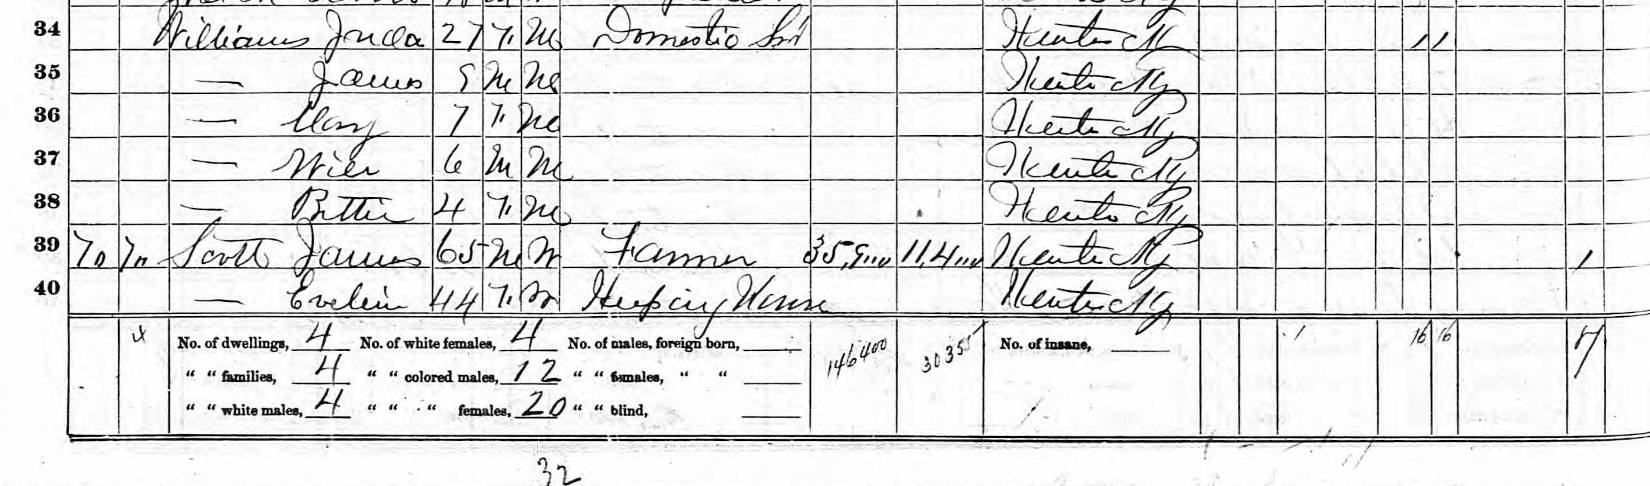 34 Williams Juda 27 F. M Domestic Svt Kentucky 1 1
35 — James 9 M M Kentucky
36 — Mary 7 F. M Kentucky
37 — M Kentucky
38 — Bettie 4 F. M Kentucky
39 70 70 Scott James 65 M W Farmer Kentucky 1
40 — Evelin 44 F. W Keeping House Kentucky
No. of dwellings, 4 No. of white females, 4 No. of males, foreign born, 146400 30355 No. of insane, 1 16 16
" " families, 4 " " colored males, 12 " " females, " "
" " white males, 4 " " " females, 20 " " blind,
32